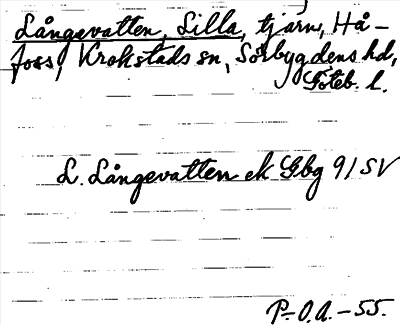 Långevatten, Lilla, tjärn, Hå-
foss, Krokstads sn, Sörbygdens hd,
Göteb. l.
L. Långevatten ek Gbg 91 SV
P.-O.A. - 55.